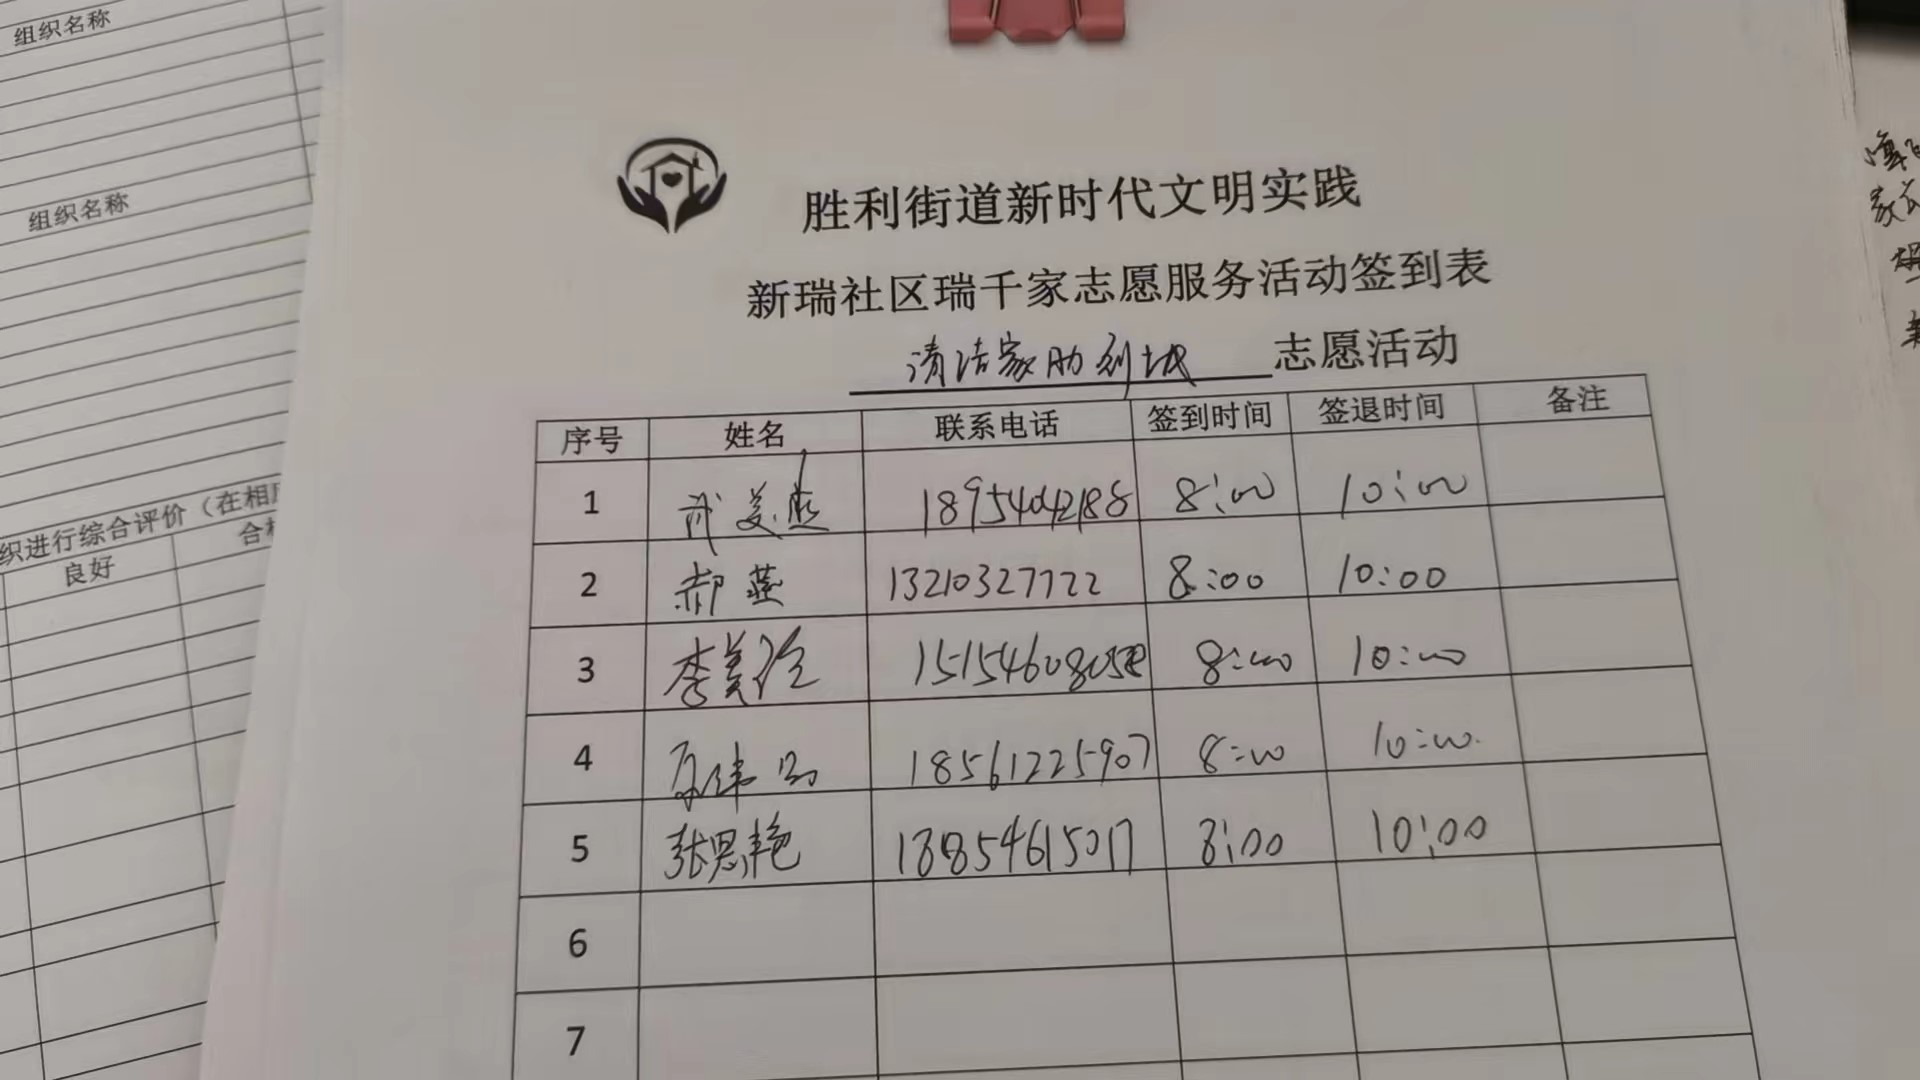 组织名称
组织名称
织进行综合评价（在相
良好 合
胜利街道新时代文明实践
新瑞社区瑞千家志愿服务活动签到表
清洁家助创城 志愿活动
序号 姓名 联系电话 签到时间 签退时间 备注
1 武美燕 18954042188 8:00 10:00
2 郝燕 13210327722 8:00 10:00
3 李美 8:00 10:00
4 18561225907 8:00 10:00
5 张思艳 18854615017 8:00 10:00
6
7